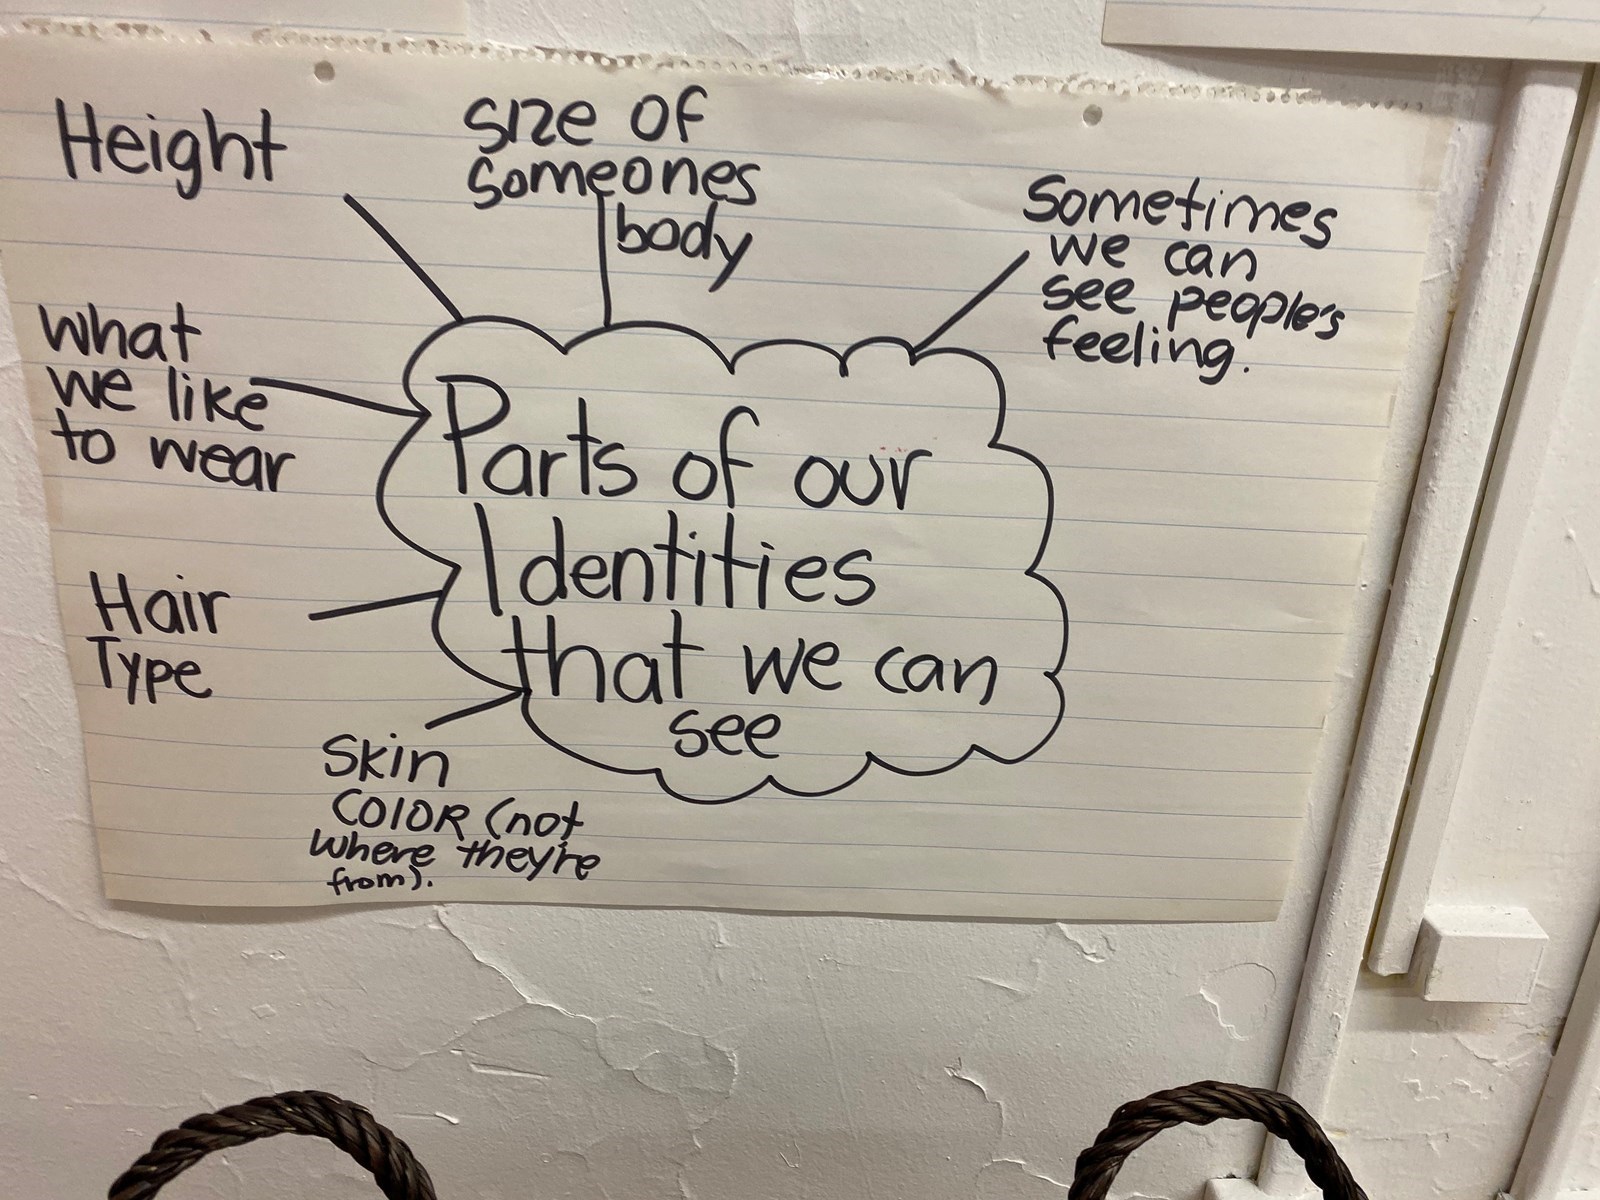 Height
size of
someones
body
Sometimes
we can
see people's
feeling.
what
we like
to wear
Parts of our
Identities
that we can
see
Hair
Type
Skin
COLOR (not
where they're
from).